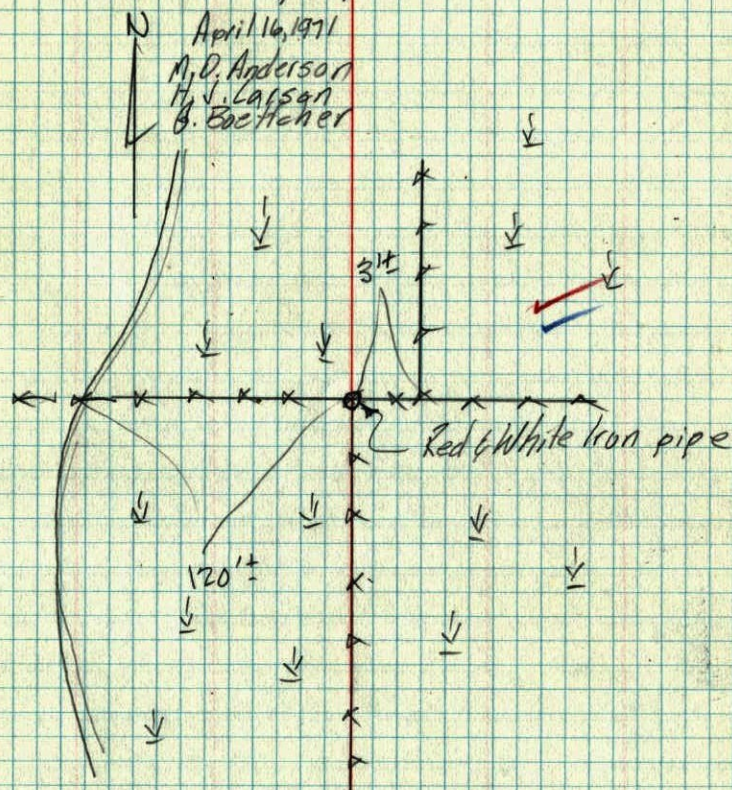 N
April 16, 1971
M.D. Anderson
H.J. Larson
B. Boettcher
3'±
Red & White Iron pipe
120'±